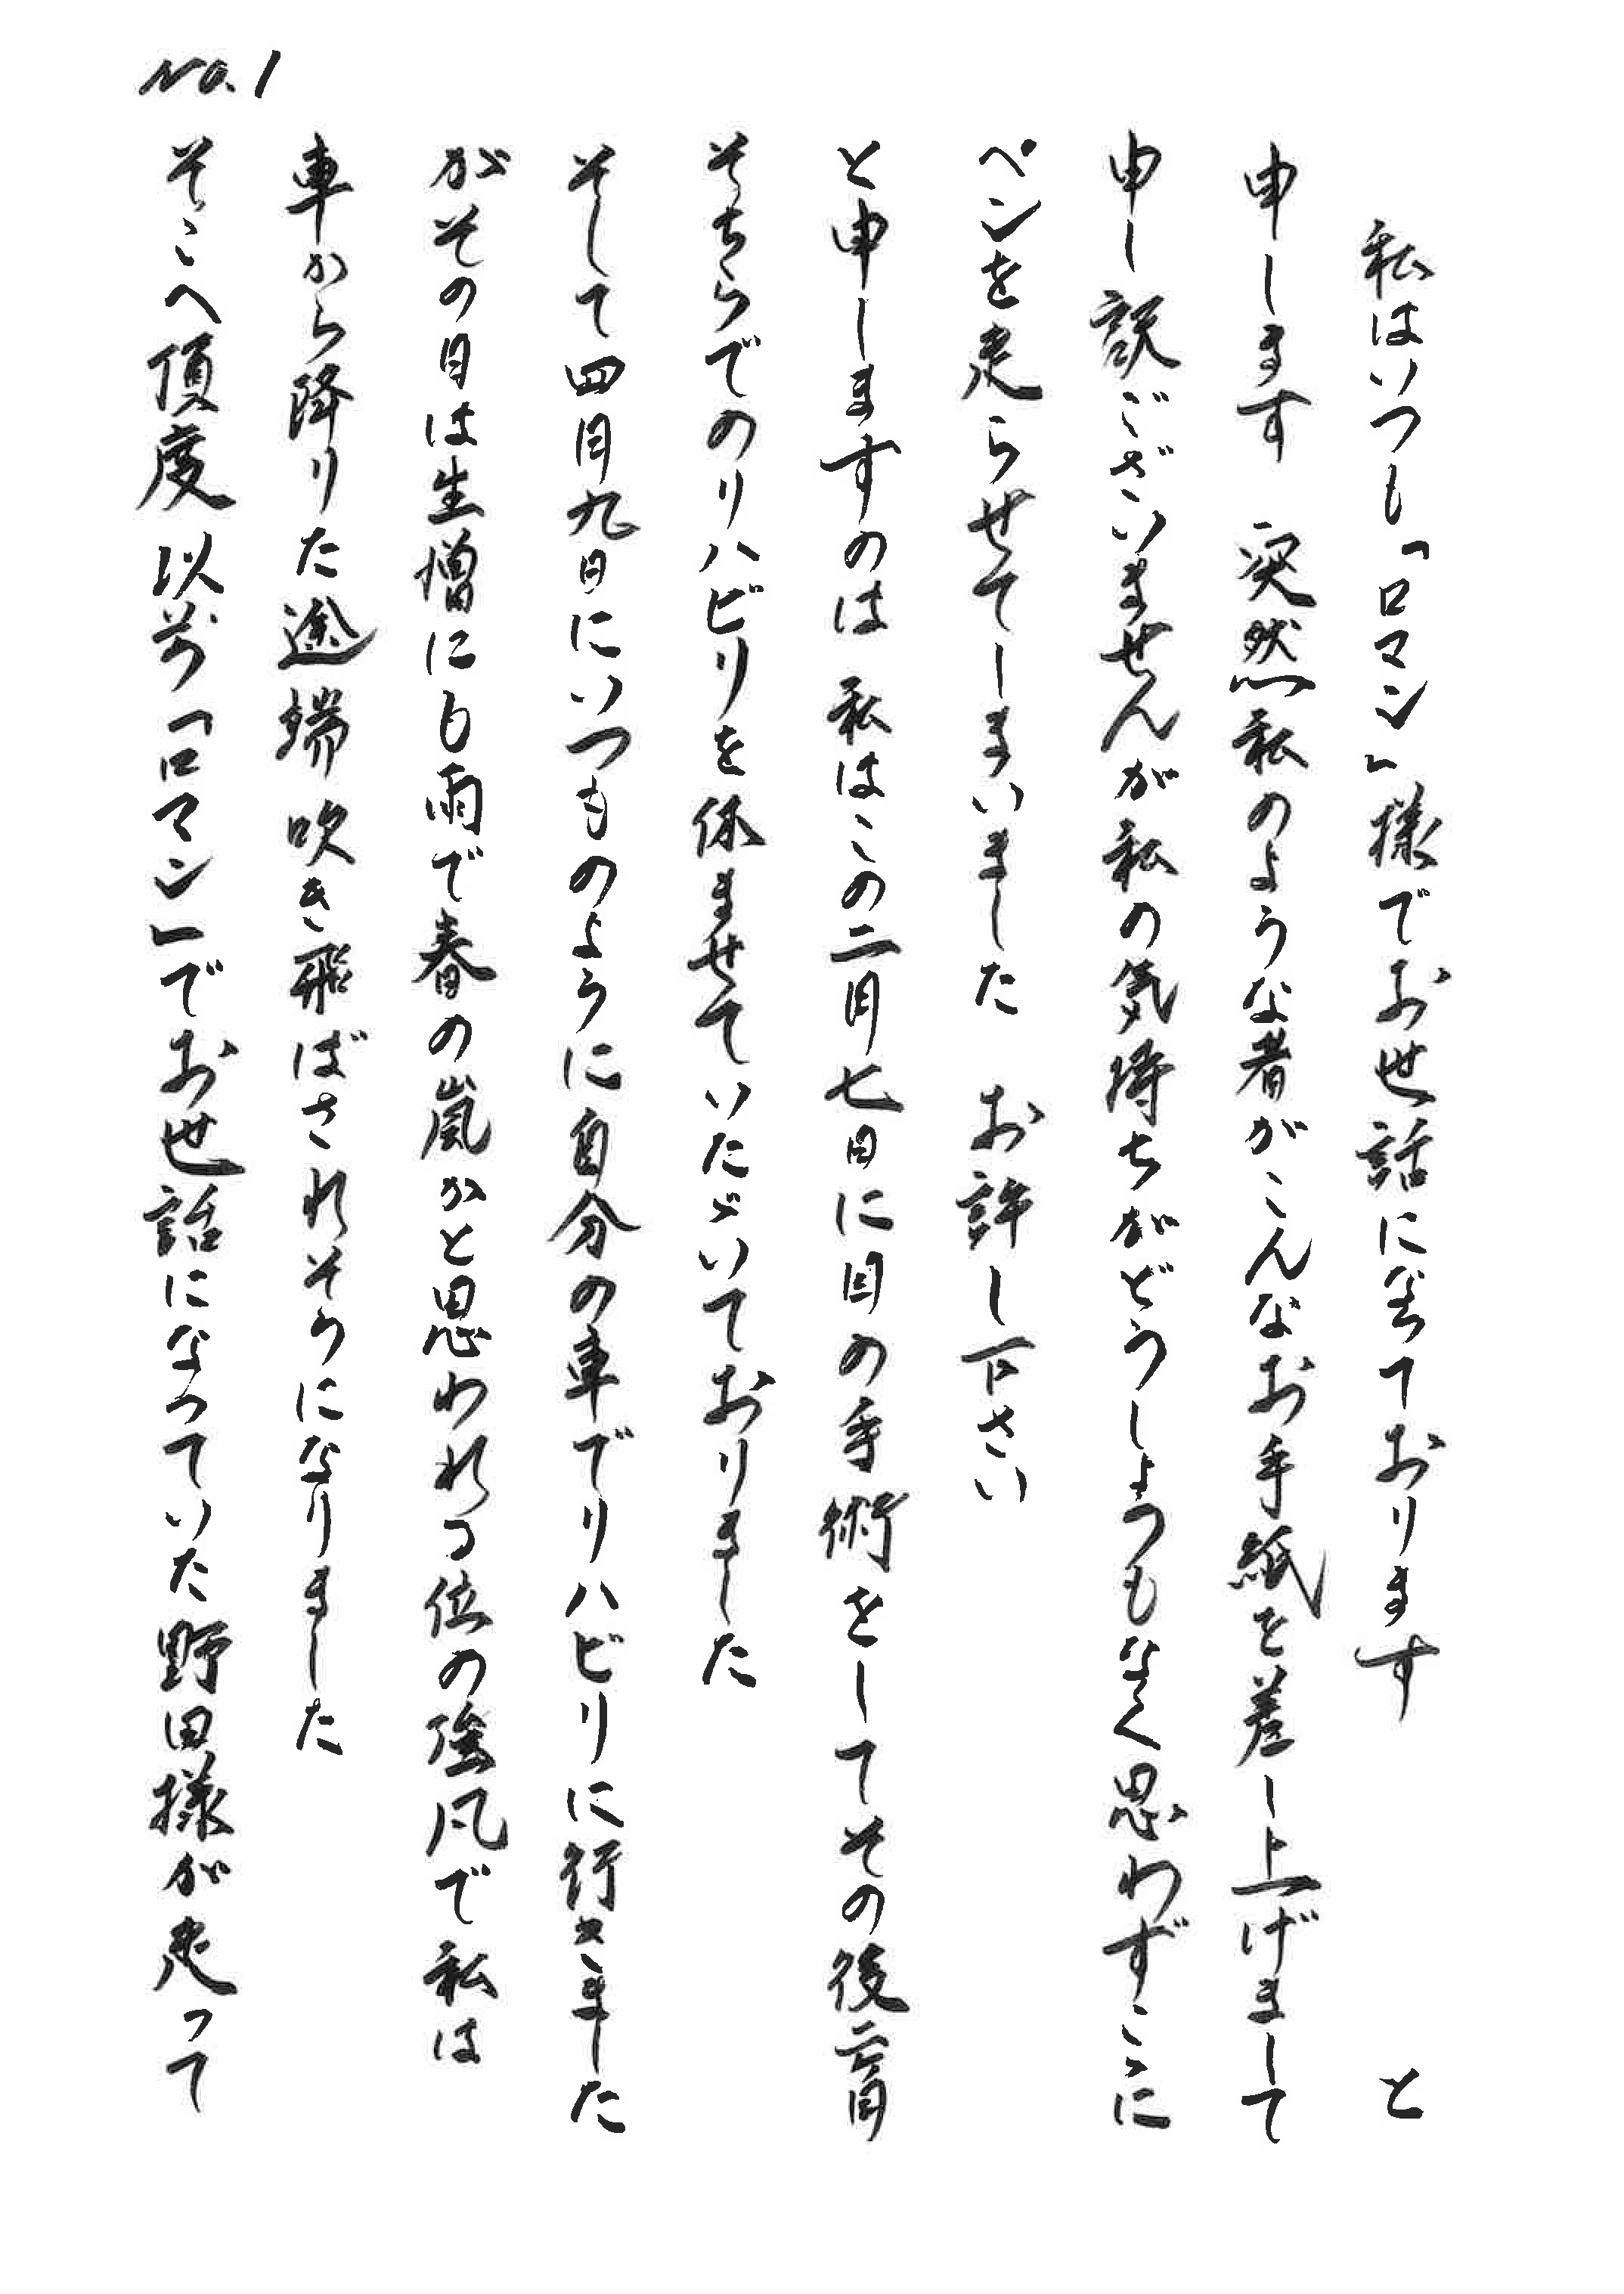 No.1
私はいつも「ロマン」様でお世話になっております　と
申します　突然私のような者がこんなお手紙を差し上げまして
申し訳ございませんが私の気持ちがどうしようもなく思わずここに
ペンを走らせてしまいました　お許し下さい
と申しますのは私はこの二月七日に目の手術をしてその後二ヶ月
そちらでのリハビリを休ませていたゞいておりました
そして四月九日にいつものように自分の車でリハビリに行きました
がその日は生憎にも雨で春の嵐かと思われる位の強風で私は
車から降りた途端吹き飛ばされそうになりました
そこへ頂度以前「ロマン」でお世話になっていた野田様が走って